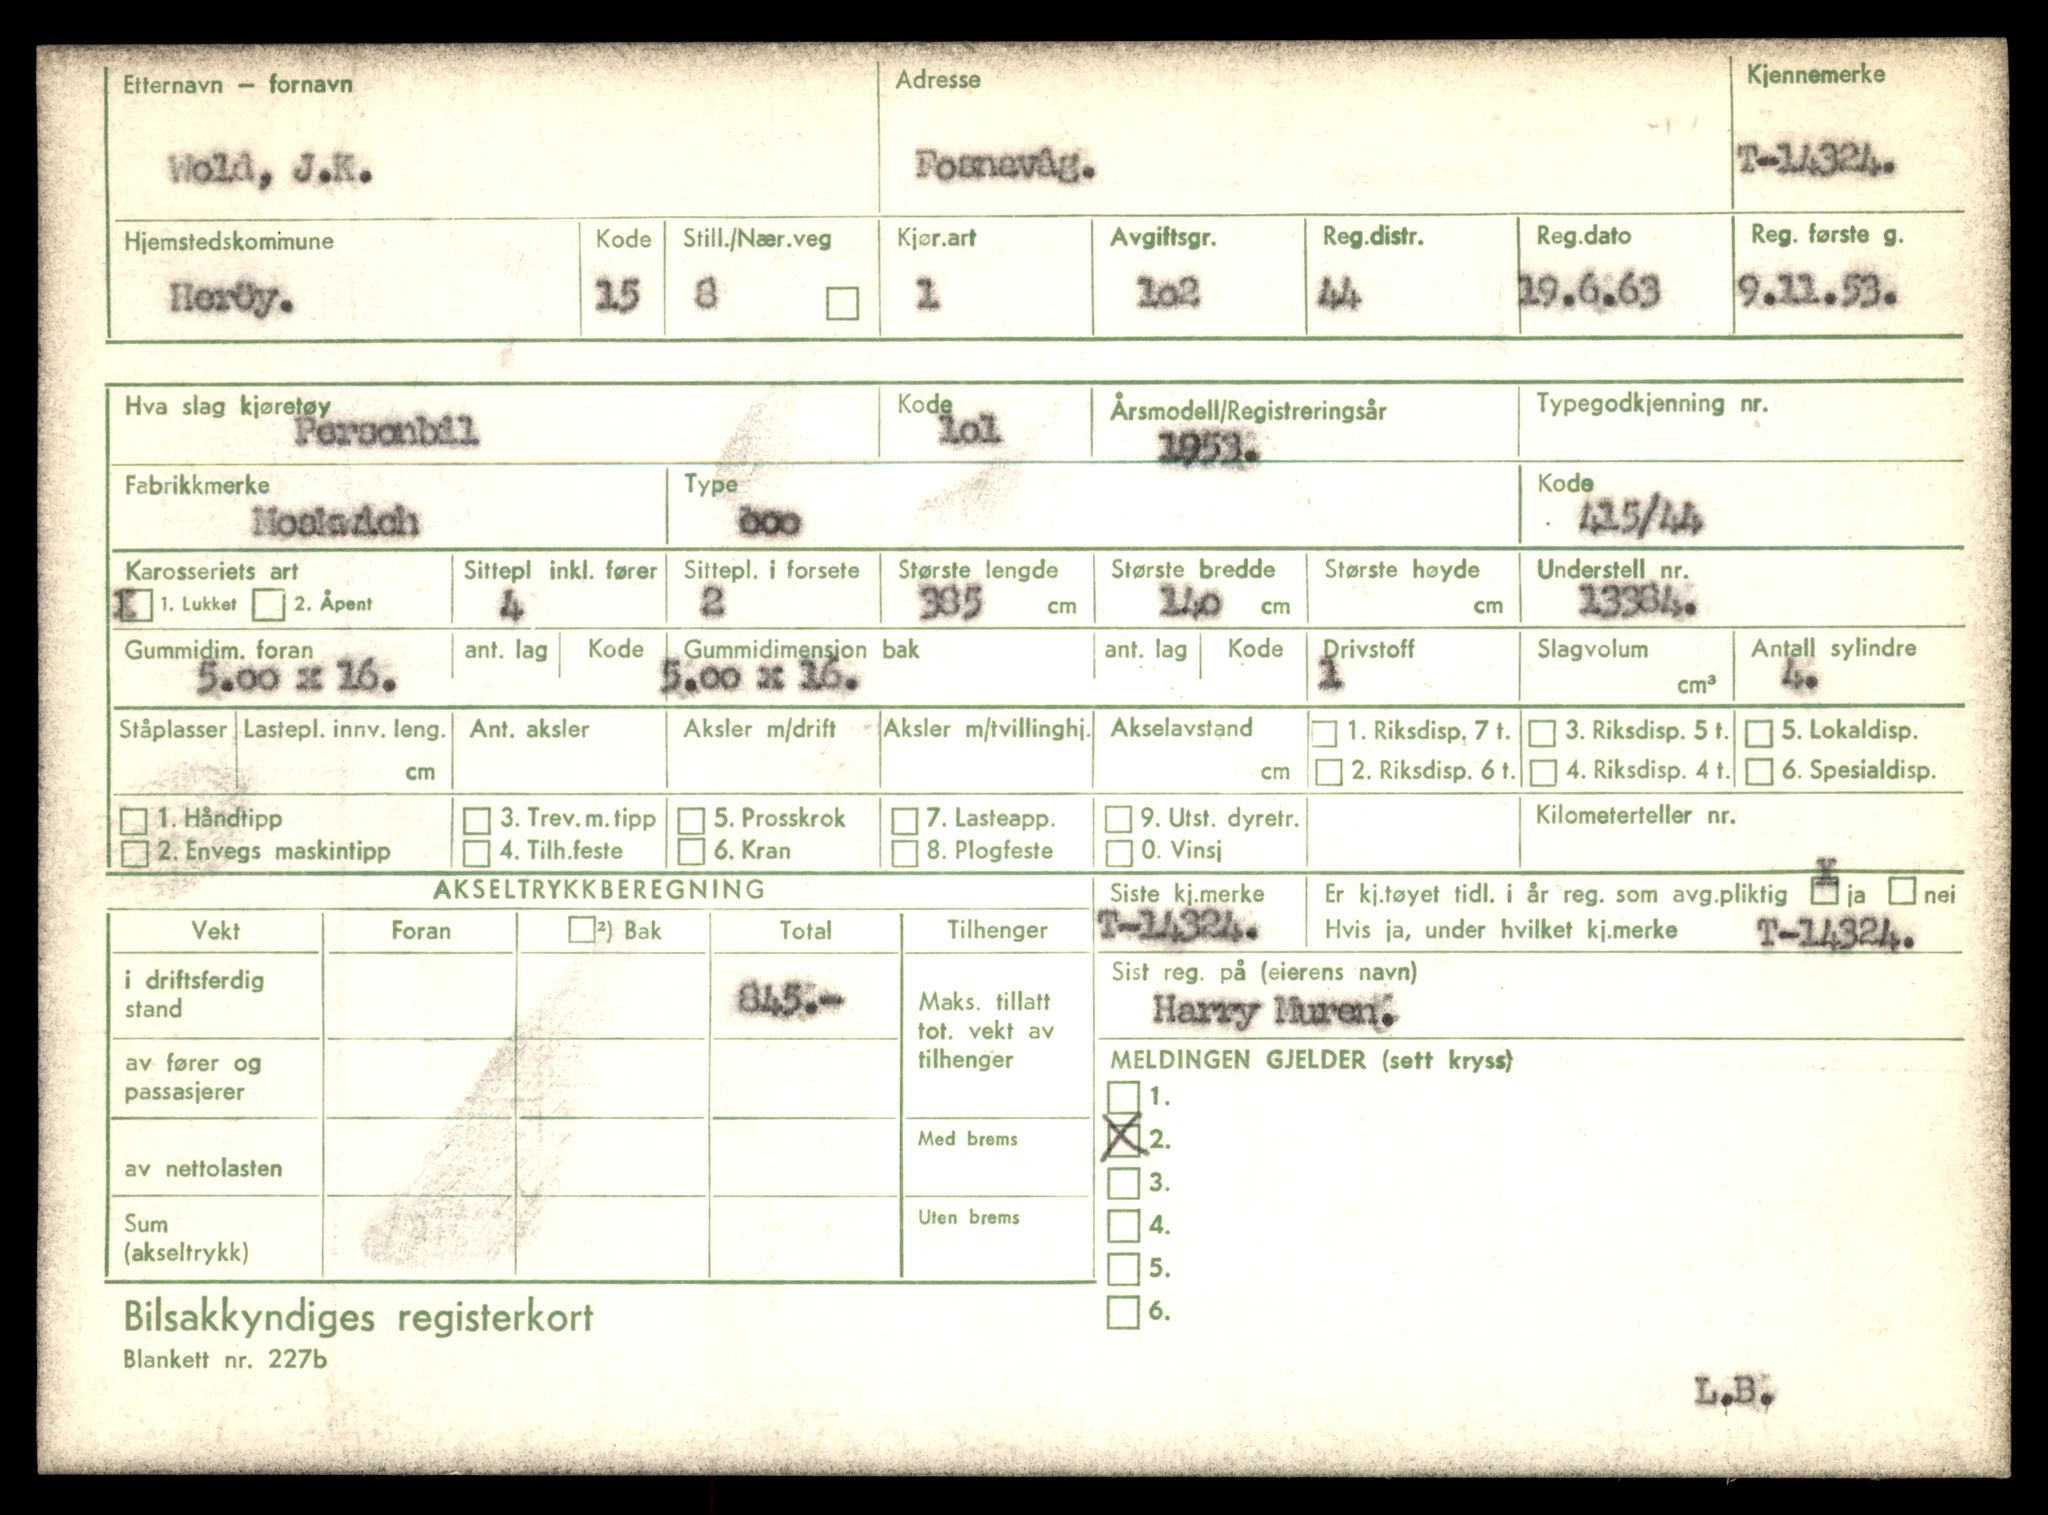 Etternavn – fornavn Adresse Kjennemerke
Wold, J.K. Fosnavåg. T-14324.
Hjemstedskommune Kode Still./Nær.veg Kjør.art Avgiftsgr. Reg.distr. Reg.dato Reg. første g.
Heröy. 15 8 1 1o2 44 19.6.63 9.11.53.
Hva slag kjøretøy Kode Årsmodell/Registreringsår Typegodkjenning nr.
Personbil 1o1 1953.
Fabrikkmerke Type Kode
Moskvich ooo 415/44
Karosseriets art Sittepl inkl. fører Sittepl. i forsete Største lengde Største bredde Største høyde Understell nr.
1. Lukket 2. Åpent 4 2 385 cm 14o cm cm 13384.
Gummidim. foran ant. lag Kode Gummidimensjon bak ant. lag Kode Drivstoff Slagvolum Antall sylindre
5.oo x 16. 5.oo x 16. 1 cm³ 4.
Ståplasser Lastepl. innv. leng. Ant. aksler Aksler m/drift Aksler m/tvillinghj. Akselavstand 1. Riksdisp. 7 t. 3. Riksdisp. 5 t. 5. Lokaldisp.
cm cm 2. Riksdisp. 6 t. 4. Riksdisp. 4 t. 6. Spesialdisp.
1. Håndtipp 3. Trev.m.tipp 5. Prosskrok 7. Lasteapp. 9. Utst. dyretr. Kilometerteller nr.
2. Envegs maskintipp 4. Tilh.feste 6. Kran 8. Plogfeste 0. Vinsj
AKSELTRYKKBEREGNING Siste kj.merke Er kj.tøyet tidl. i år reg. som avg.pliktig x ja nei
Vekt Foran ²) Bak Total Tilhenger T-14324. Hvis ja, under hvilket kj.merke T-14324.
i driftsferdig stand 845.- Maks. tillatt tot. vekt av tilhenger Sist reg. på (eierens navn)
Harry Muren.
av fører og passasjerer MELDINGEN GJELDER (sett kryss)
1.
av nettolasten Med brems X 2.
3.
Sum (akseltrykk) Uten brems 4.
5.
Bilsakkyndiges registerkort 6.
Blankett nr. 227b
L.B.